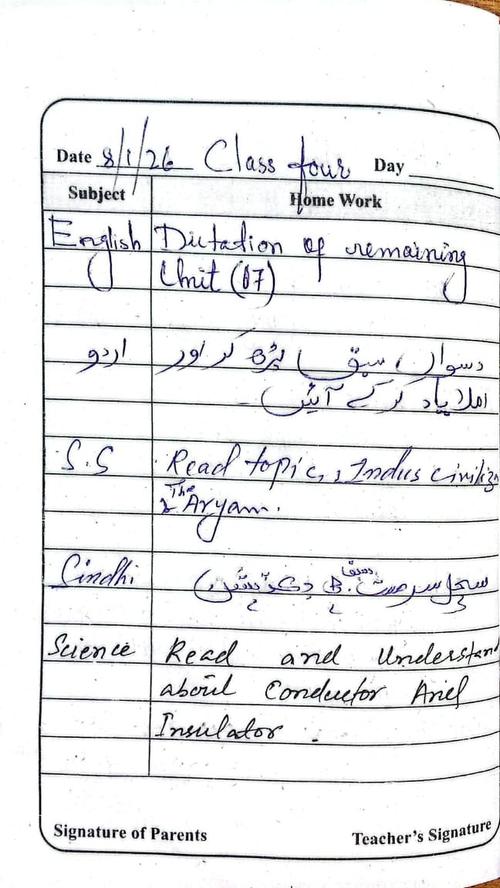 Date 8/1/26 Class four Day
Subject Home Work
English Dictation of remaining
Unit (07)
اردو دسواں سبق پڑھ کر اور
املا یاد کر کے آئیں۔
S.S Read topic, Indus civiliz
& The Aryam.
Sindhi سچل سرمست سبق
Science Read and Understand
about Conductor And
Insulator.
Signature of Parents Teacher's Signature